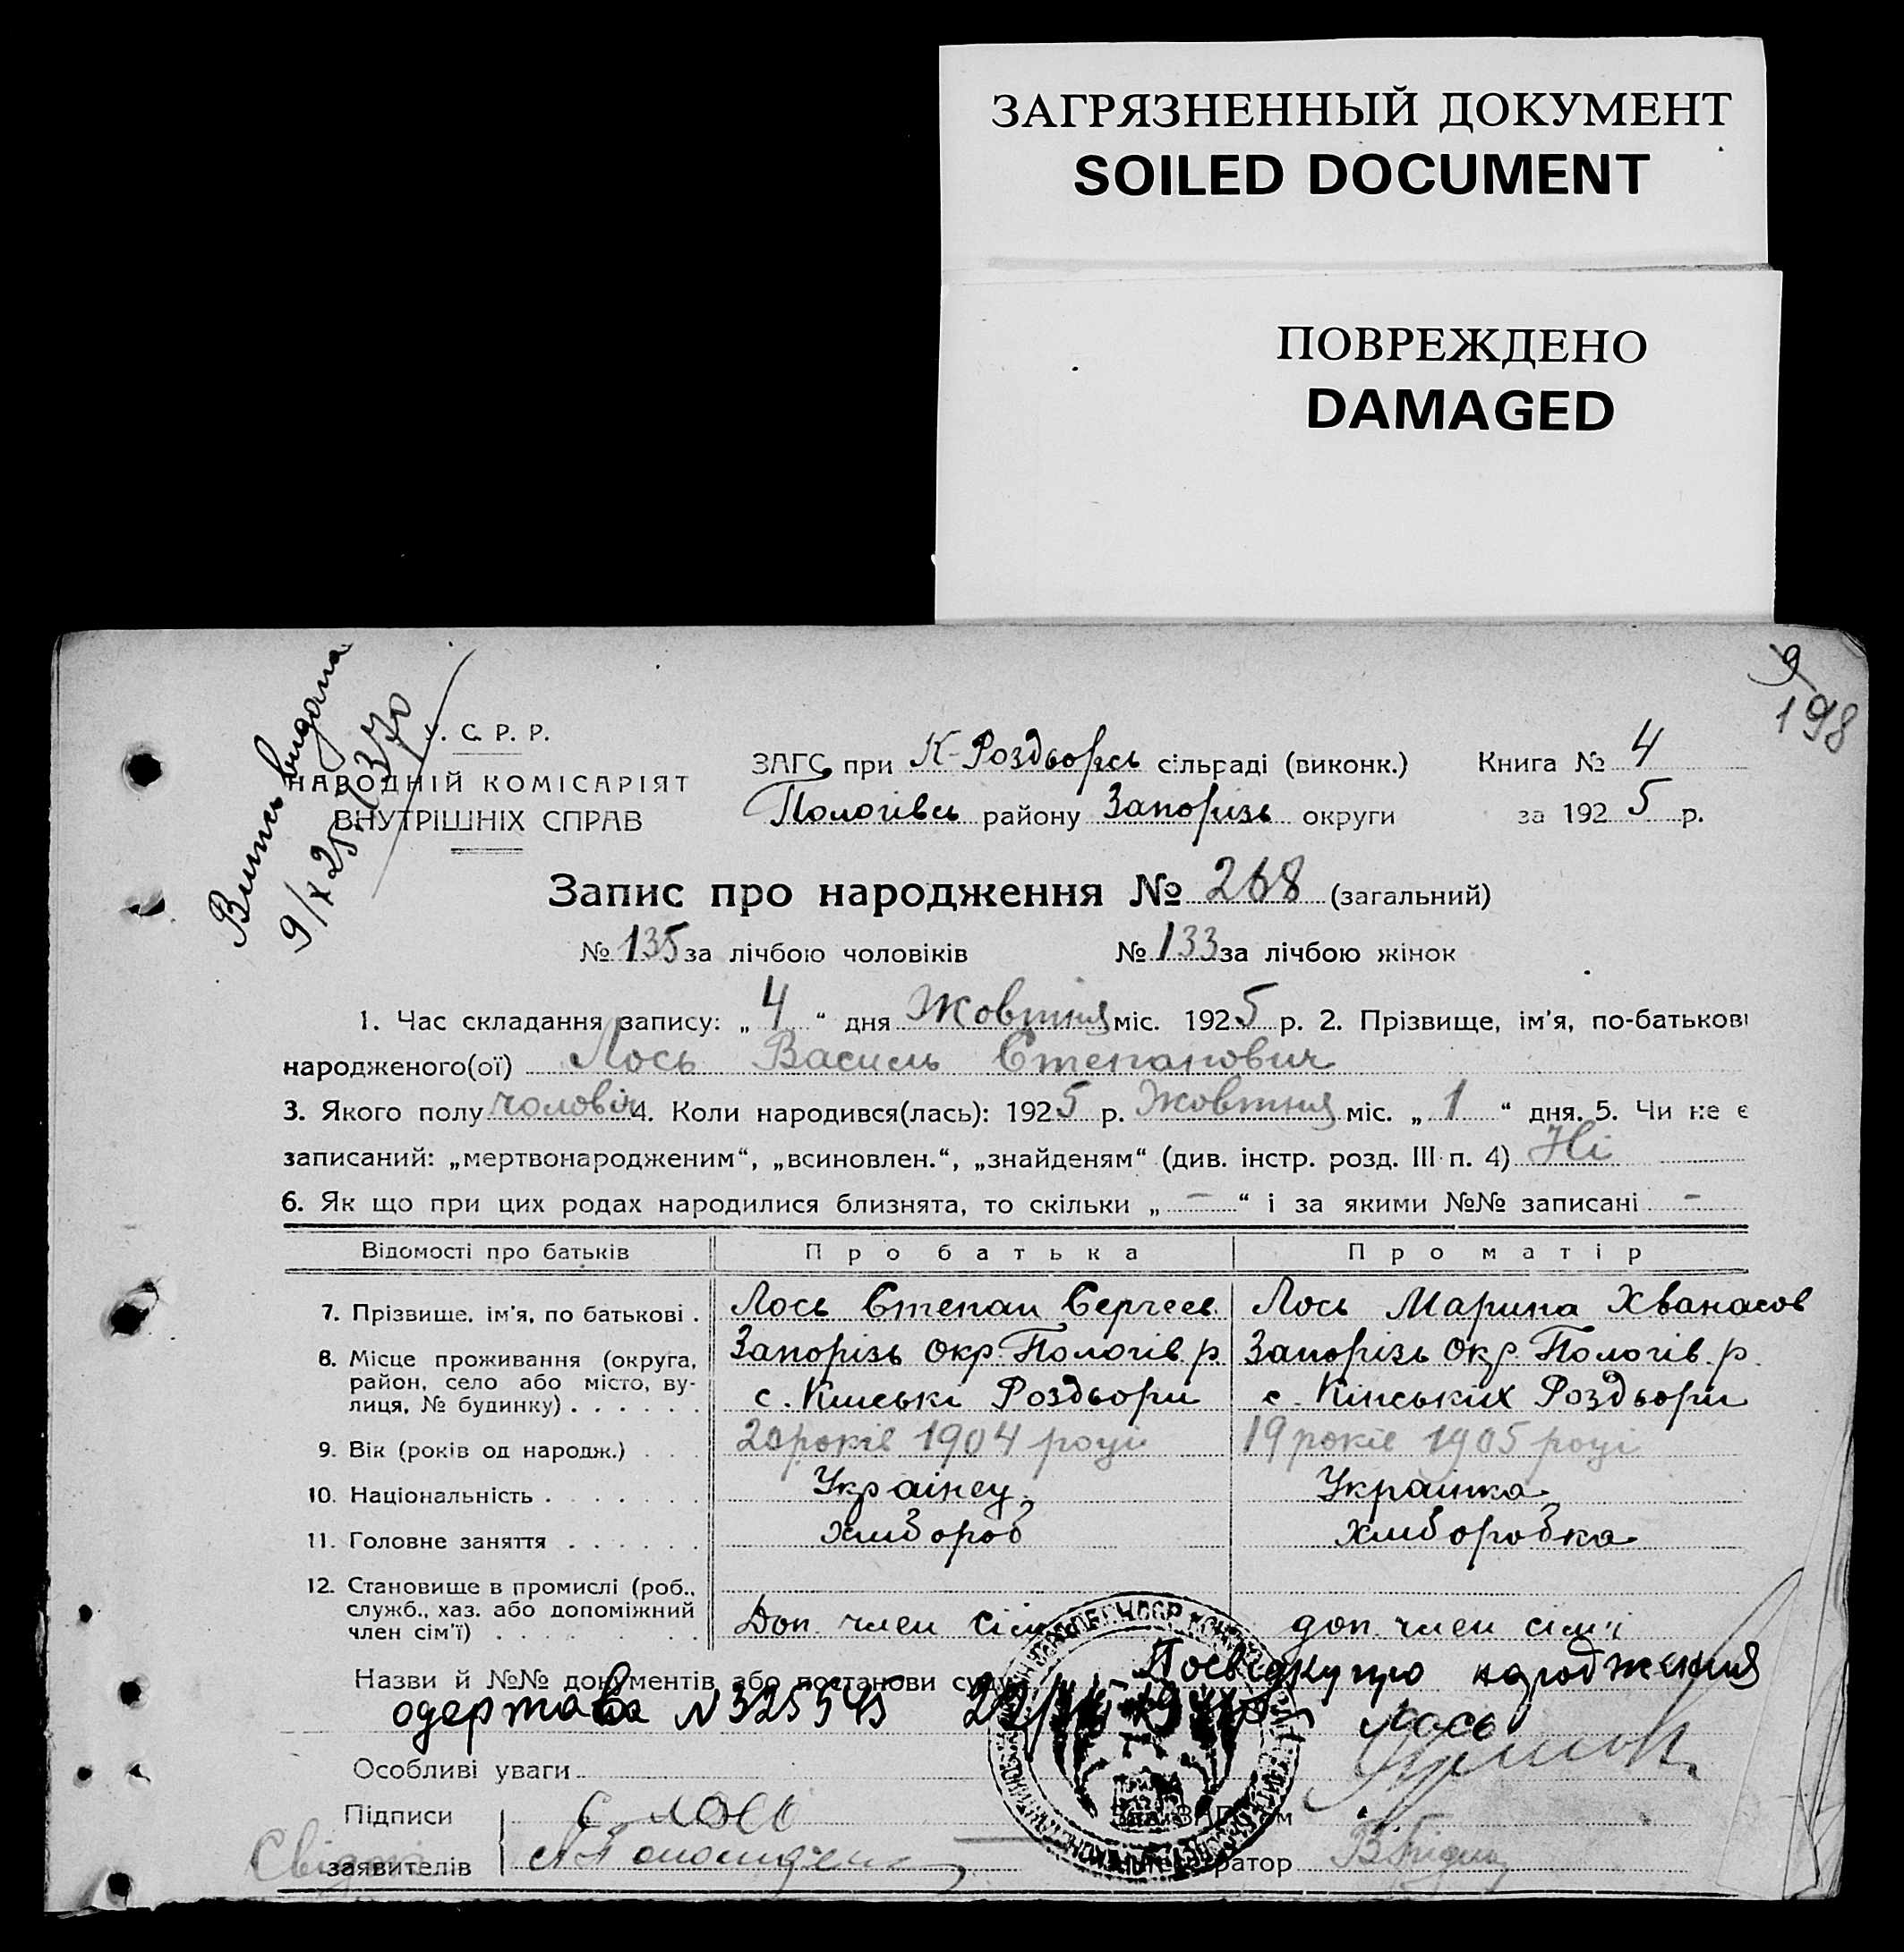 ЗАГРЯЗНЕННЫЙ ДОКУМЕНТ
SOILED DOCUMENT
ПОВРЕЖДЕНО
DAMAGED
9
198
Випись видана
9/X 25 (370
У. С. Р. Р.
НАРОДНІЙ КОМІСАРІЯТ
ВНУТРІШНІХ СПРАВ
ЗАГС при К-Роздорсь сільраді (виконк.) Книга № 4
Пологівсь району Запорізь округи за 1925 р.
Запис про народження № 268 (загальний)
№ 135 за лічбою чоловіків № 133 за лічбою жінок
1. Час складання запису: „ 4 “ дня Жовтня міс. 1925 р. 2. Прізвище, ім'я, по-батькові
народженого(ої) Лось Василь Степанович
3. Якого полу чоловіч 4. Коли народився(лась): 1925 р. Жовтня міс. „ 1 “ дня. 5. Чи не є
записаний: „мертвонародженим“, „всиновлен.“, „знайденям“ (див. інстр. розд. III п. 4) Ні
6. Як що при цих родах народилися близнята, то скільки „ – “ і за якими №№ записані –
Відомості про батьків Про батька Про матір
7. Прізвище, ім'я, по батькові . Лось Степан Сергеев. Лось Марина Хванасов
8. Місце проживання (округа, Запорізь Окр Пологів. р Запорізь Окр. Пологів. р.
район, село або місто, ву-
лиця, № будинку) . . . . . . с. Кінські Роздьори с. Кінських Роздьори
9. Вік (років од народж.) . . . 20 років 1904 році 19 років 1905 році
10. Національність . . . . . . . Українец Українка
11. Головне заняття . . . . . . хлибороб хлиборобка
12. Становище в промислі (роб.,
служб., хаз. або допоміжний
член сім'ї) . . . . . . . . Доп. член сім доп. член сім'ї
Назви й №№ документів або постанови суду Посвідку про народження
одержава N 325545 Лось
Особливі уваги
Підписи С Лось Зав. ЗАГС'ом
Свідки заявителів